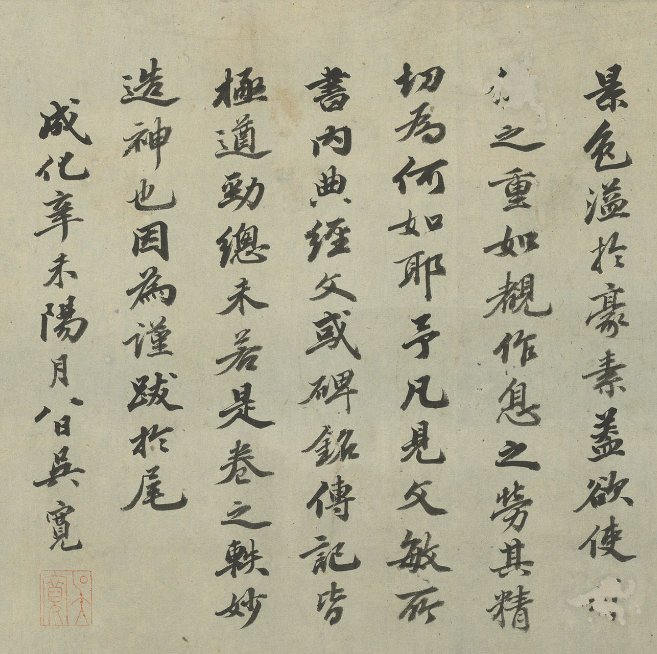 景色溢於豪素蓋欲使
之重如覩作息之勞其精
切為何如耶予凡見文敏所
書內典經文或碑銘傳記皆
極遒勁總未若是卷之軼妙
造神也因為謹跋於尾
成化辛未陽月八日吳寬